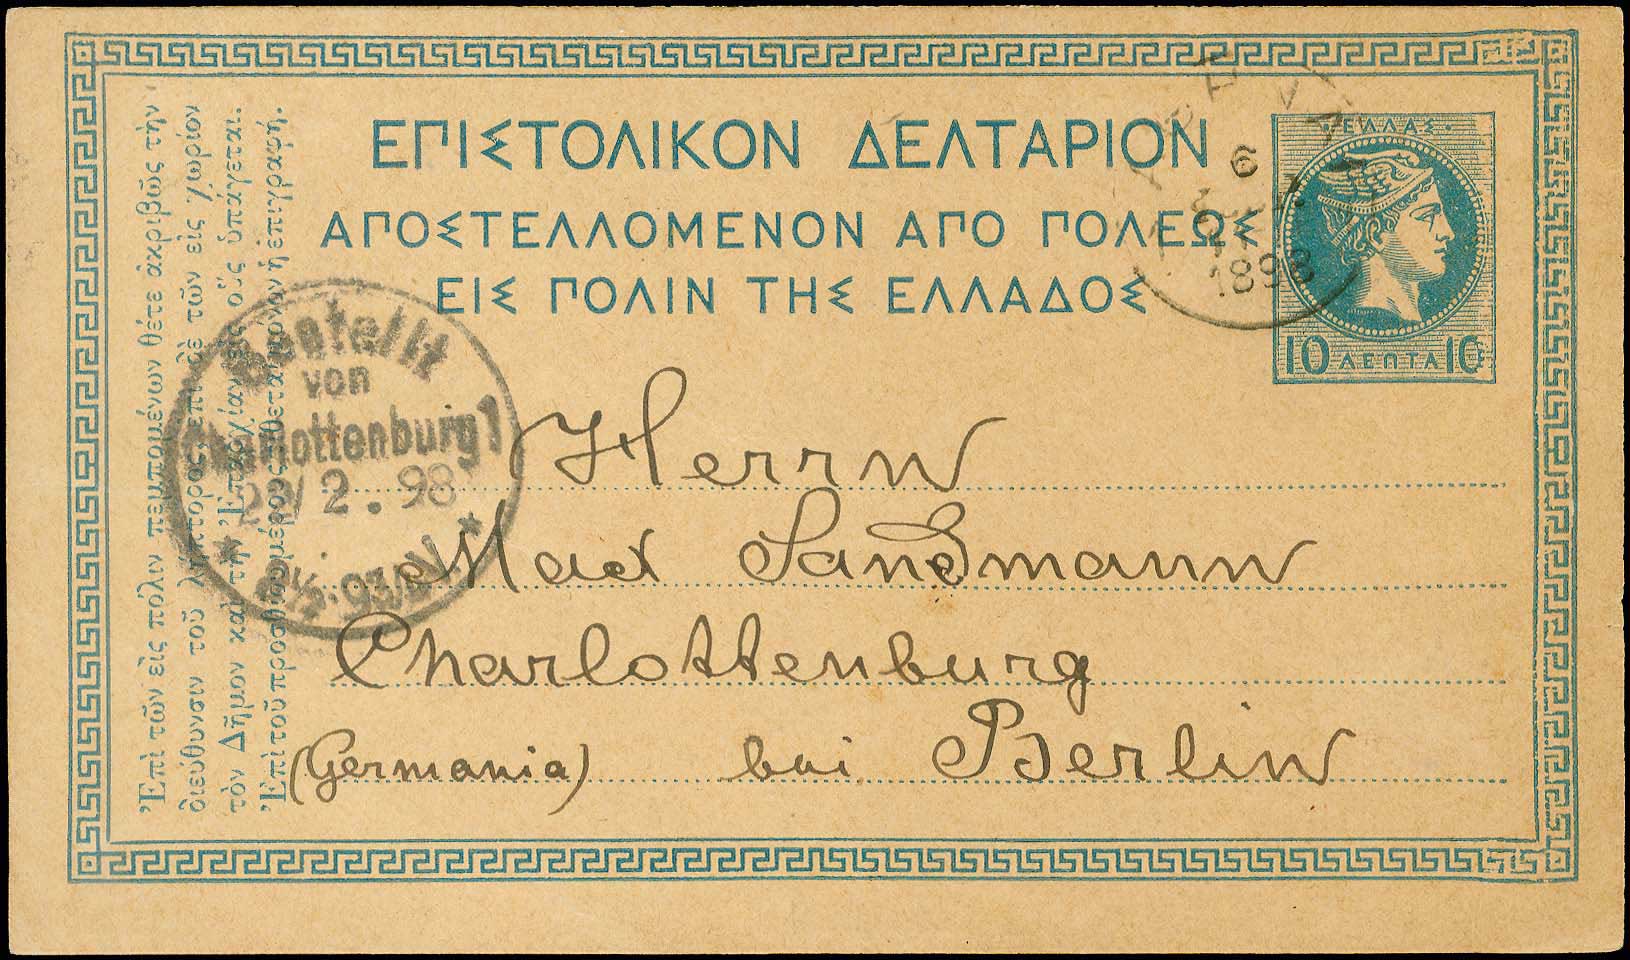 ΕΠΙΣΤΟΛΙΚΟΝ ΔΕΛΤΑΡΙΟΝ
ΑΠΟΣΤΕΛΛΟΜΕΝΟΝ ΑΠΟ ΠΟΛΕΩΣ
ΕΙΣ ΠΟΛΙΝ ΤΗΣ ΕΛΛΑΔΟΣ
ΕΛΛΑΣ
10 ΛΕΠΤΑ 10
6
1898
Bestellt
von
Charlottenburg 1
2. 98
Herrn
Max Sandmann
Charlottenburg
(Germania) bei Berlin
Ἐπὶ τῶν εἰς πόλιν πεμπομένων θέτε ἀκριβῶς τὴν
διεύθυνσιν τοῦ λήπτορος, ἐπὶ δὲ τῶν εἰς χωρίον
τὸν Δῆμον καὶ τὴν Ἐπαρχίαν εἰς οὓς ὑπάγεται.
Ἐπὶ τοῦ προσθίου μέρους θέται μόνον ἡ ἐπιγραφή.